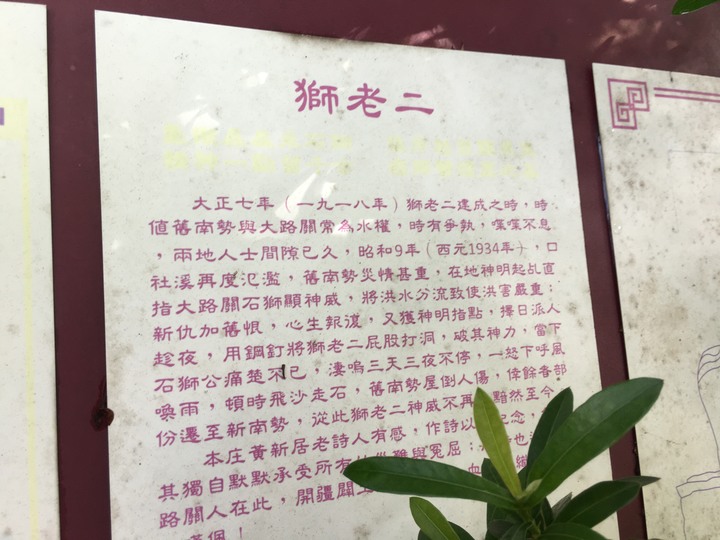 獅老二
大正七年（一九一八年）獅老二建成之時，時
值舊南勢與大路關常為水權，時有爭執，喋喋不息
，兩地人士間隙已久，昭和9年（西元1934年），口
社溪再度氾濫，舊南勢災情甚重，在地神明起乩直
指大路關石獅顯神威，將洪水分流致使洪害嚴重；
新仇加舊恨，心生報復，又獲神明指點，擇日派人
趁夜，用鋼釘將獅老二屁股打洞，破其神力，當下
石獅公痛楚不已，淒嗚三天三夜不停，一怒下呼風
喚雨，頓時飛沙走石，舊南勢屋倒人傷，倖餘各部
份遷至新南勢，從此獅老二神威不再 黯然至今
本庄黃新居老詩人有感，作詩以 紀念，
其獨自默默承受所有 難與冤屈； 也
路關人在此，開疆闢 血